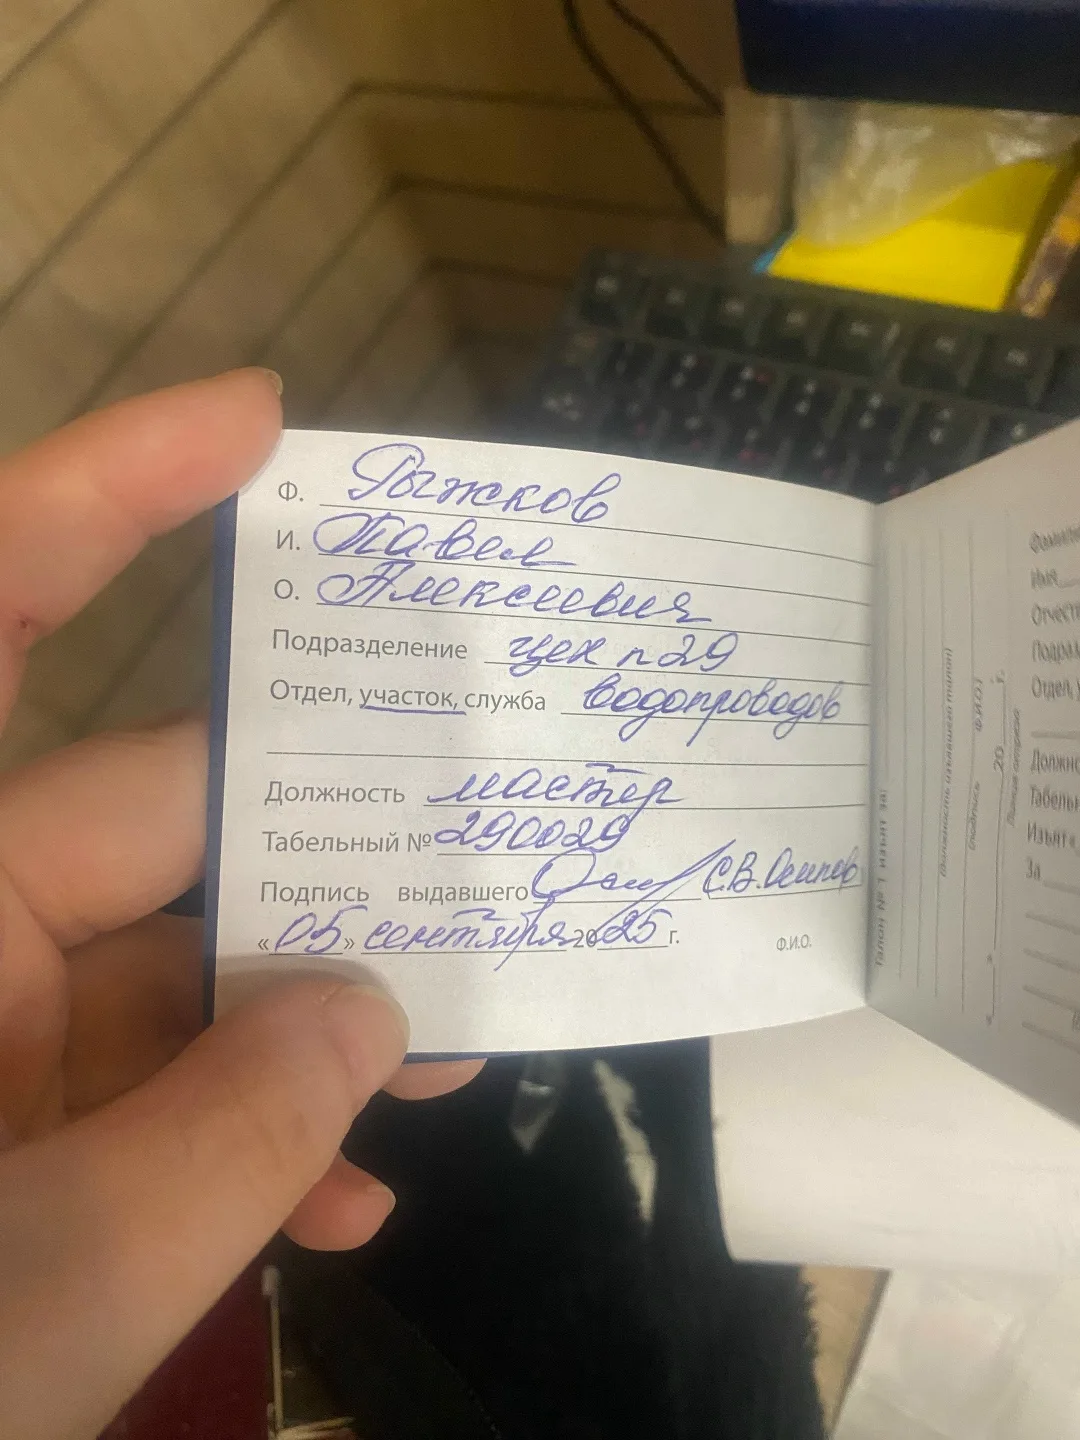 Ф. Рыжков
И. Павел
О. Алексеевич
Подразделение цех п 29
Отдел, участок, служба водопроводов
Должность мастер
Табельный № 290029
Подпись выдавшего С.В. Осипов
«05» сентября 2025 г. Ф.И.О.
Талон № 1 изъят за:
(должность изъявшего талон)
(подпись Ф.И.О.)
« » 20 г.
Линия отреза
Фамилия
Имя
Отчест
Подраз
Отдел, у
Должно
Табельн
Изъят «
За